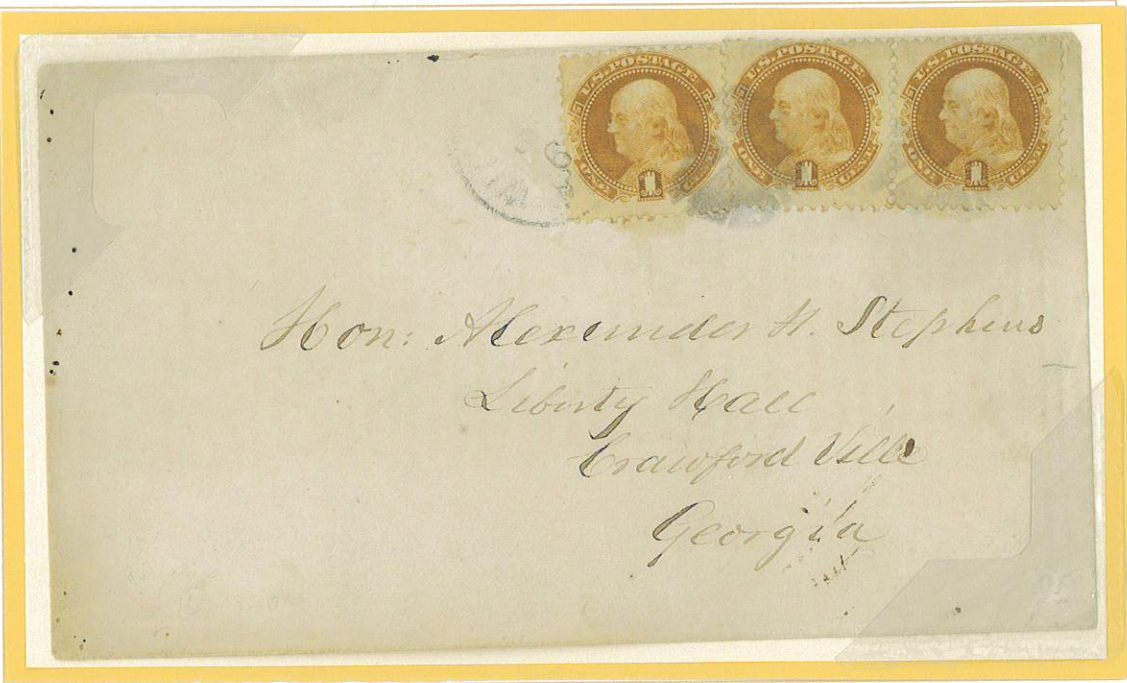 U.S. POSTAGE U.S. POSTAGE U.S. POSTAGE
ONE 1 CENT ONE 1 CENT ONE 1 CENT
Hon: Alexander H. Stephens
Liberty Hall
Crawford Ville
Georgia